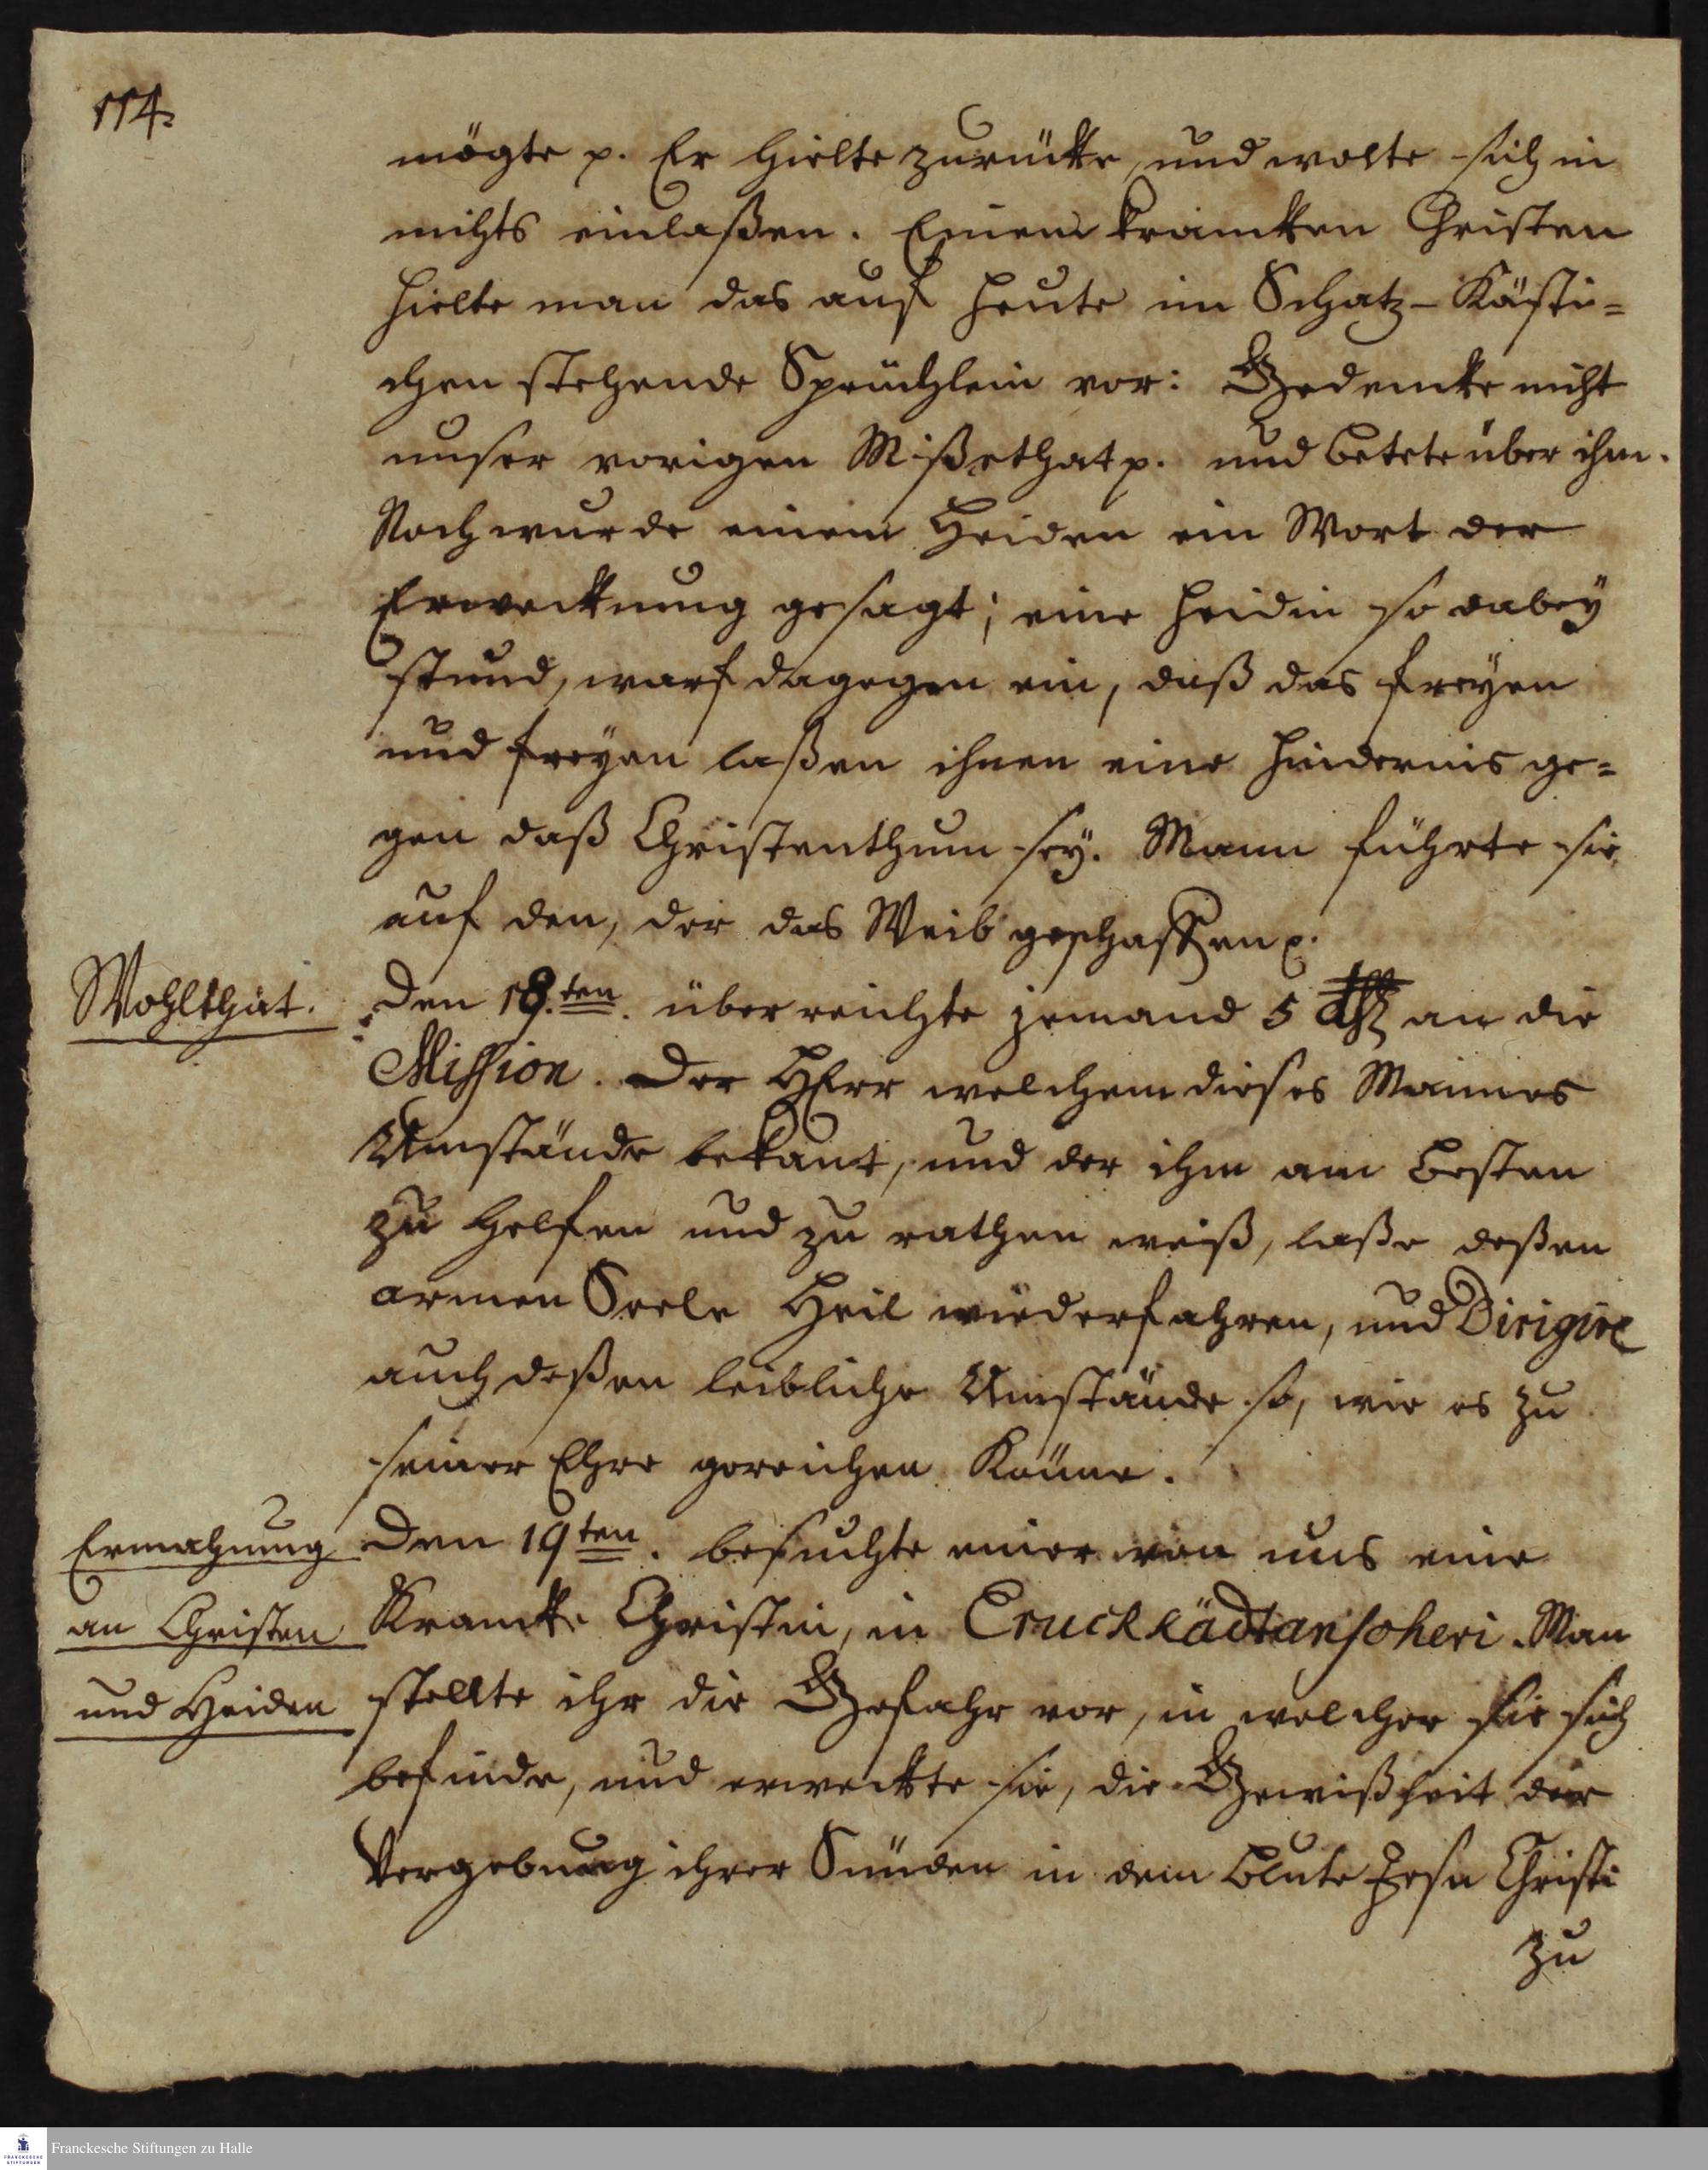 114.
mögte p. Er hielte zurücke, und wolte sich in
nichts einlaßen. Einem krancken Christen
hielte man das auf heute im Schatz-Kästi=
chen stehende Sprüchlein vor: Gedencke nicht
unser vorigen Mißethat p. und betete über ihm.
Noch wurde einem Heiden ein Wort der
Erweckung gesagt; eine Heidin so dabey
stund, warf dagegen ein, daß das freyen
und freyen laßen ihnen eine Hindernis ge=
gen daß Christenthum sey. Mann führte sie
auf den, der das Weib geschaffen p.
Wohlthat.
Den 18.ten. überreichte jemand 5 an die
Mission. Der HErr welchem dieses Mannes
Umstände bekant, und der ihm am besten
zu helfen und zu rathen weiß, laße deßen
armen Seele Heil wiederfahren, und Dirigire
auch deßen leibliche Umstände so, wie es zu
seiner Ehre gereichen könne.
Ermahnung
an Christen
und Heiden
Den 19ten. besuchte einer von uns eine
Krancke Christin, in Eruckkädtanscheri. Man
stellte ihr die Gefahr vor, in welcher sie sich
befinde, und erweckte sie, die Gewißheit der
Vergebung ihrer Sünden in dem Blute Jesu Christi
zu
Franckesche Stiftungen zu Halle
FRANCKESCHE
STIFTUNGEN